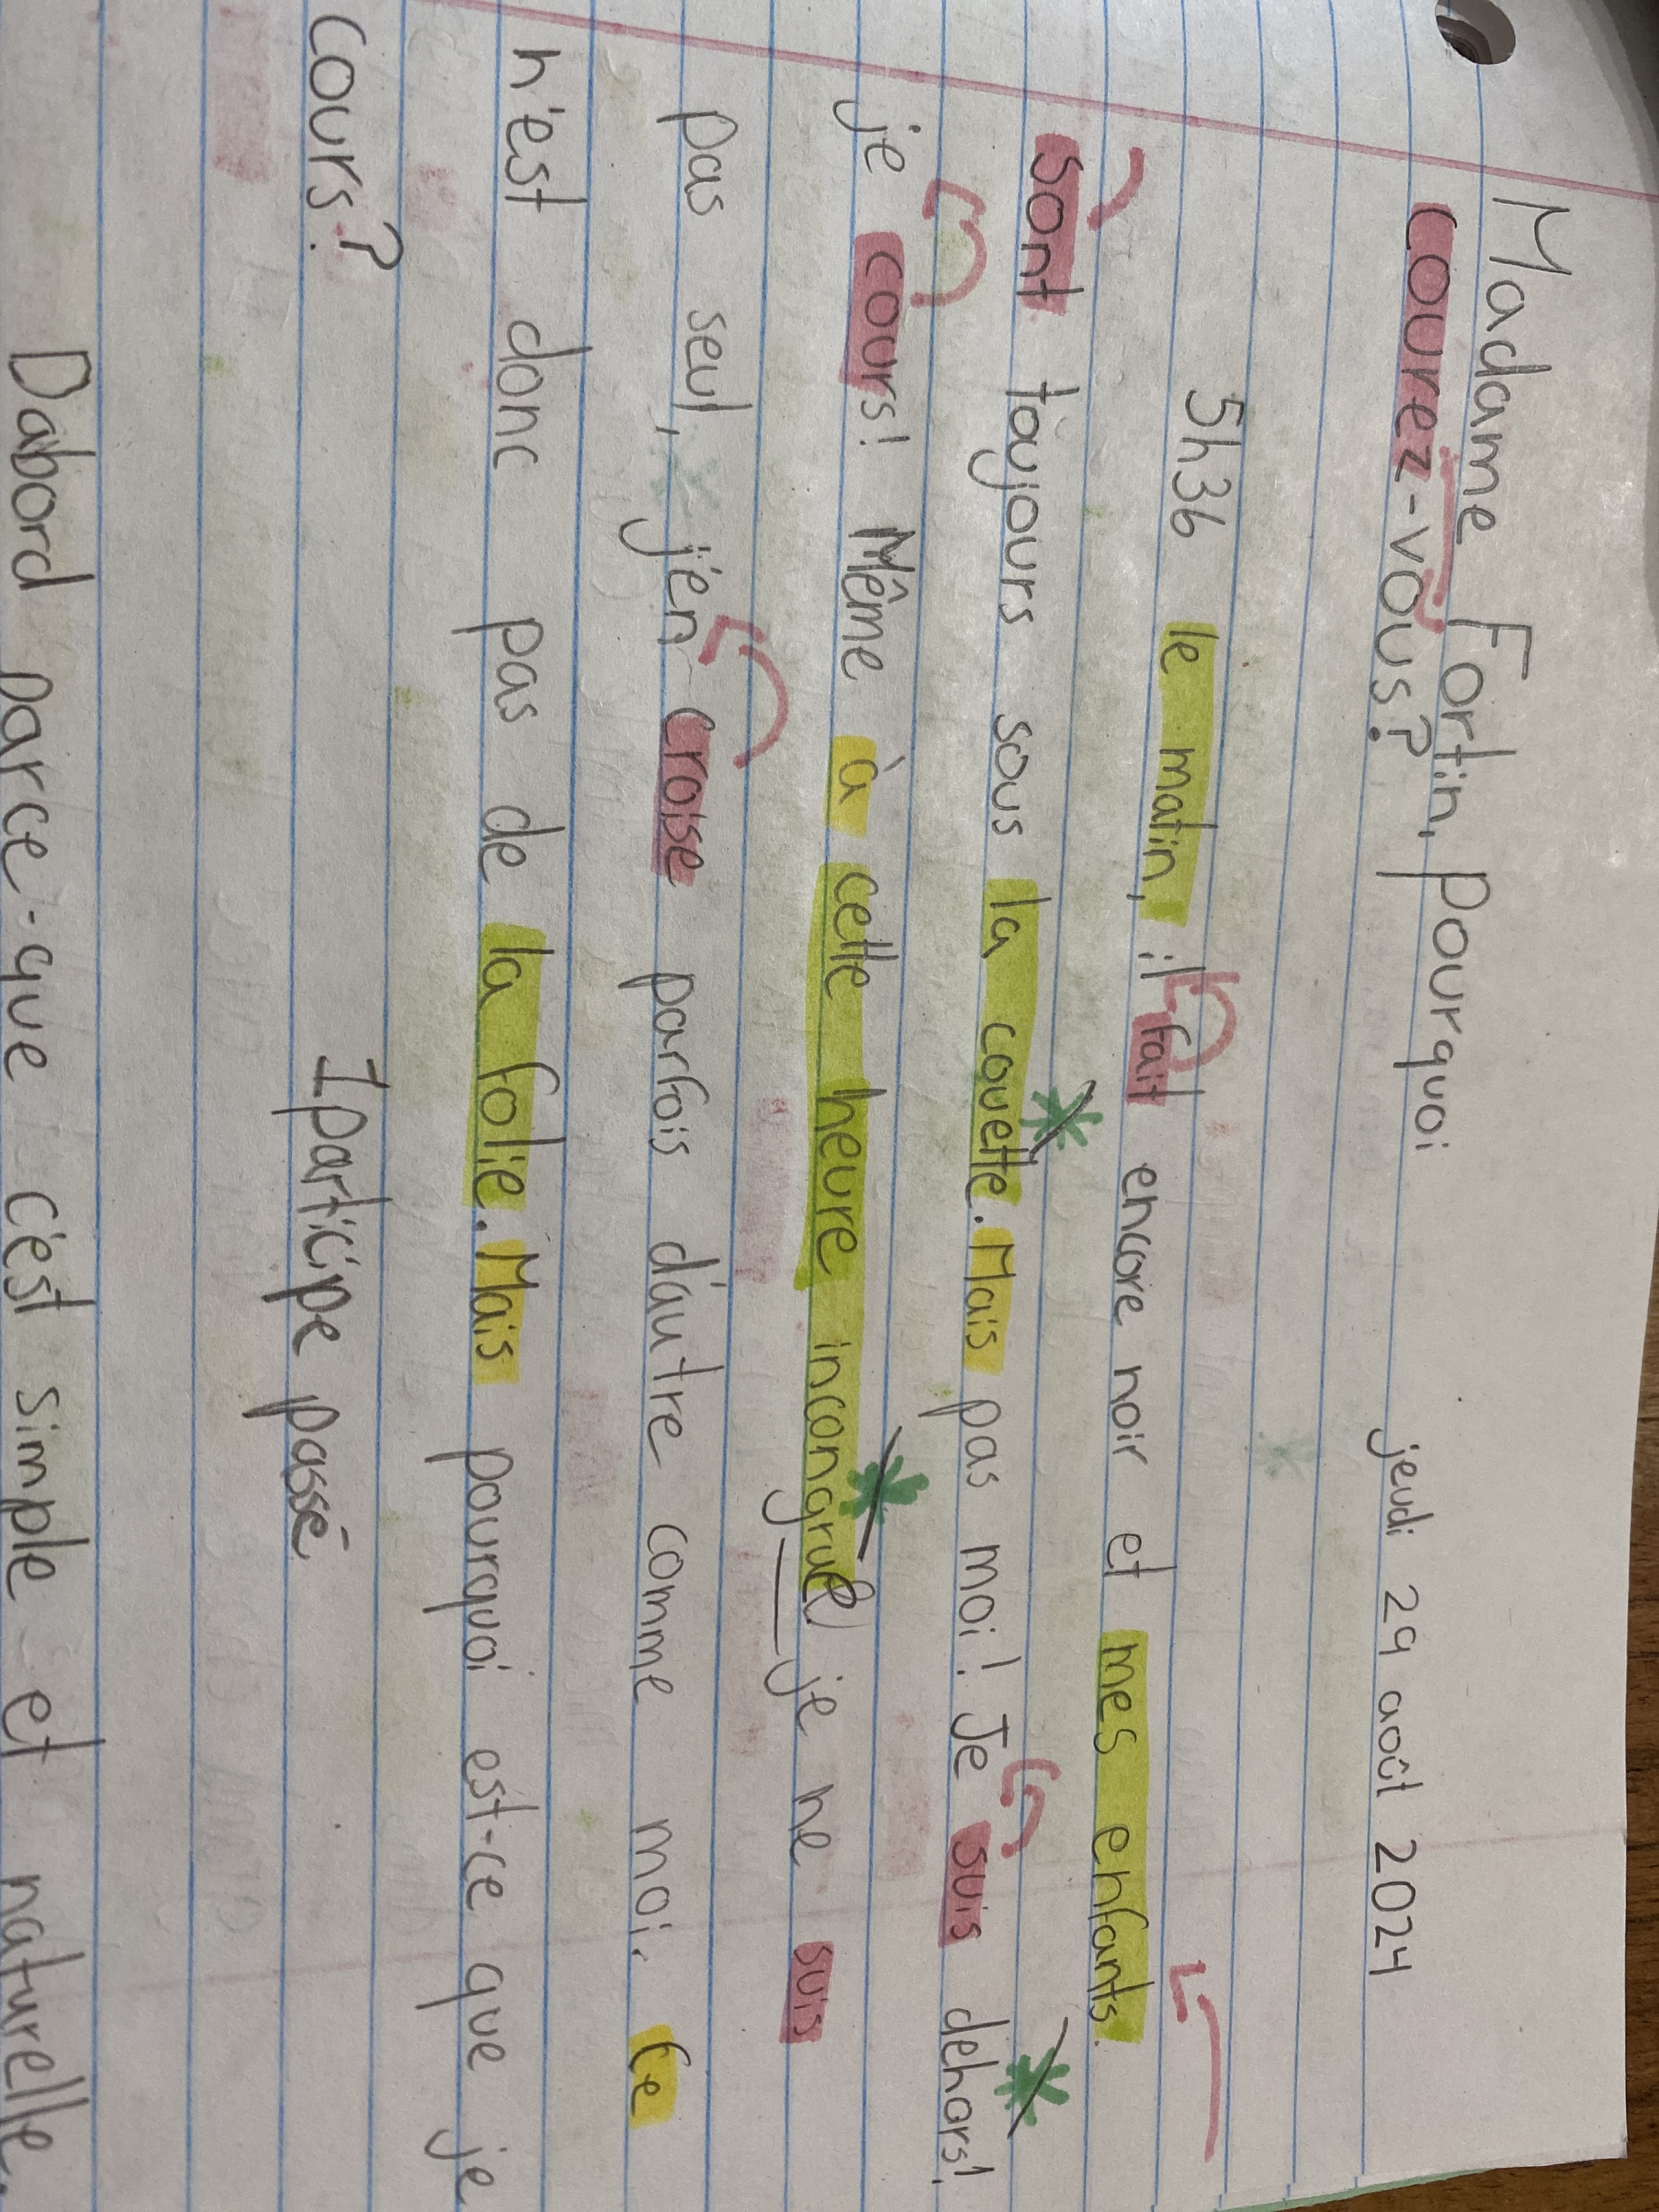 Madame Fortin, pourquoi
courez-vous?
jeudi 29 août 2024
5h36 le matin, il fait encore noir et mes enfants.
sont toujours sous la couette. Mais pas moi! Je suis dehors!
je cours! Même à cette heure incongrue je ne suis
pas seul, j'en croise parfois d'autre comme moi. Ce
n'est donc pas de la folie. Mais pourquoi est-ce que je
cours?
1 participe passé
Dabord parce-que c'est simple et naturelle.